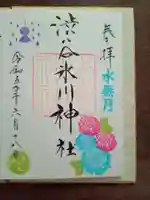 奉拝
水無月
渋谷氷川神社
令和五年六月十八日